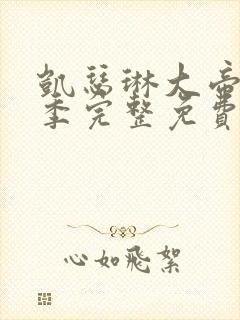 凱瑟琳大帝
季完整免費
心如飛絮